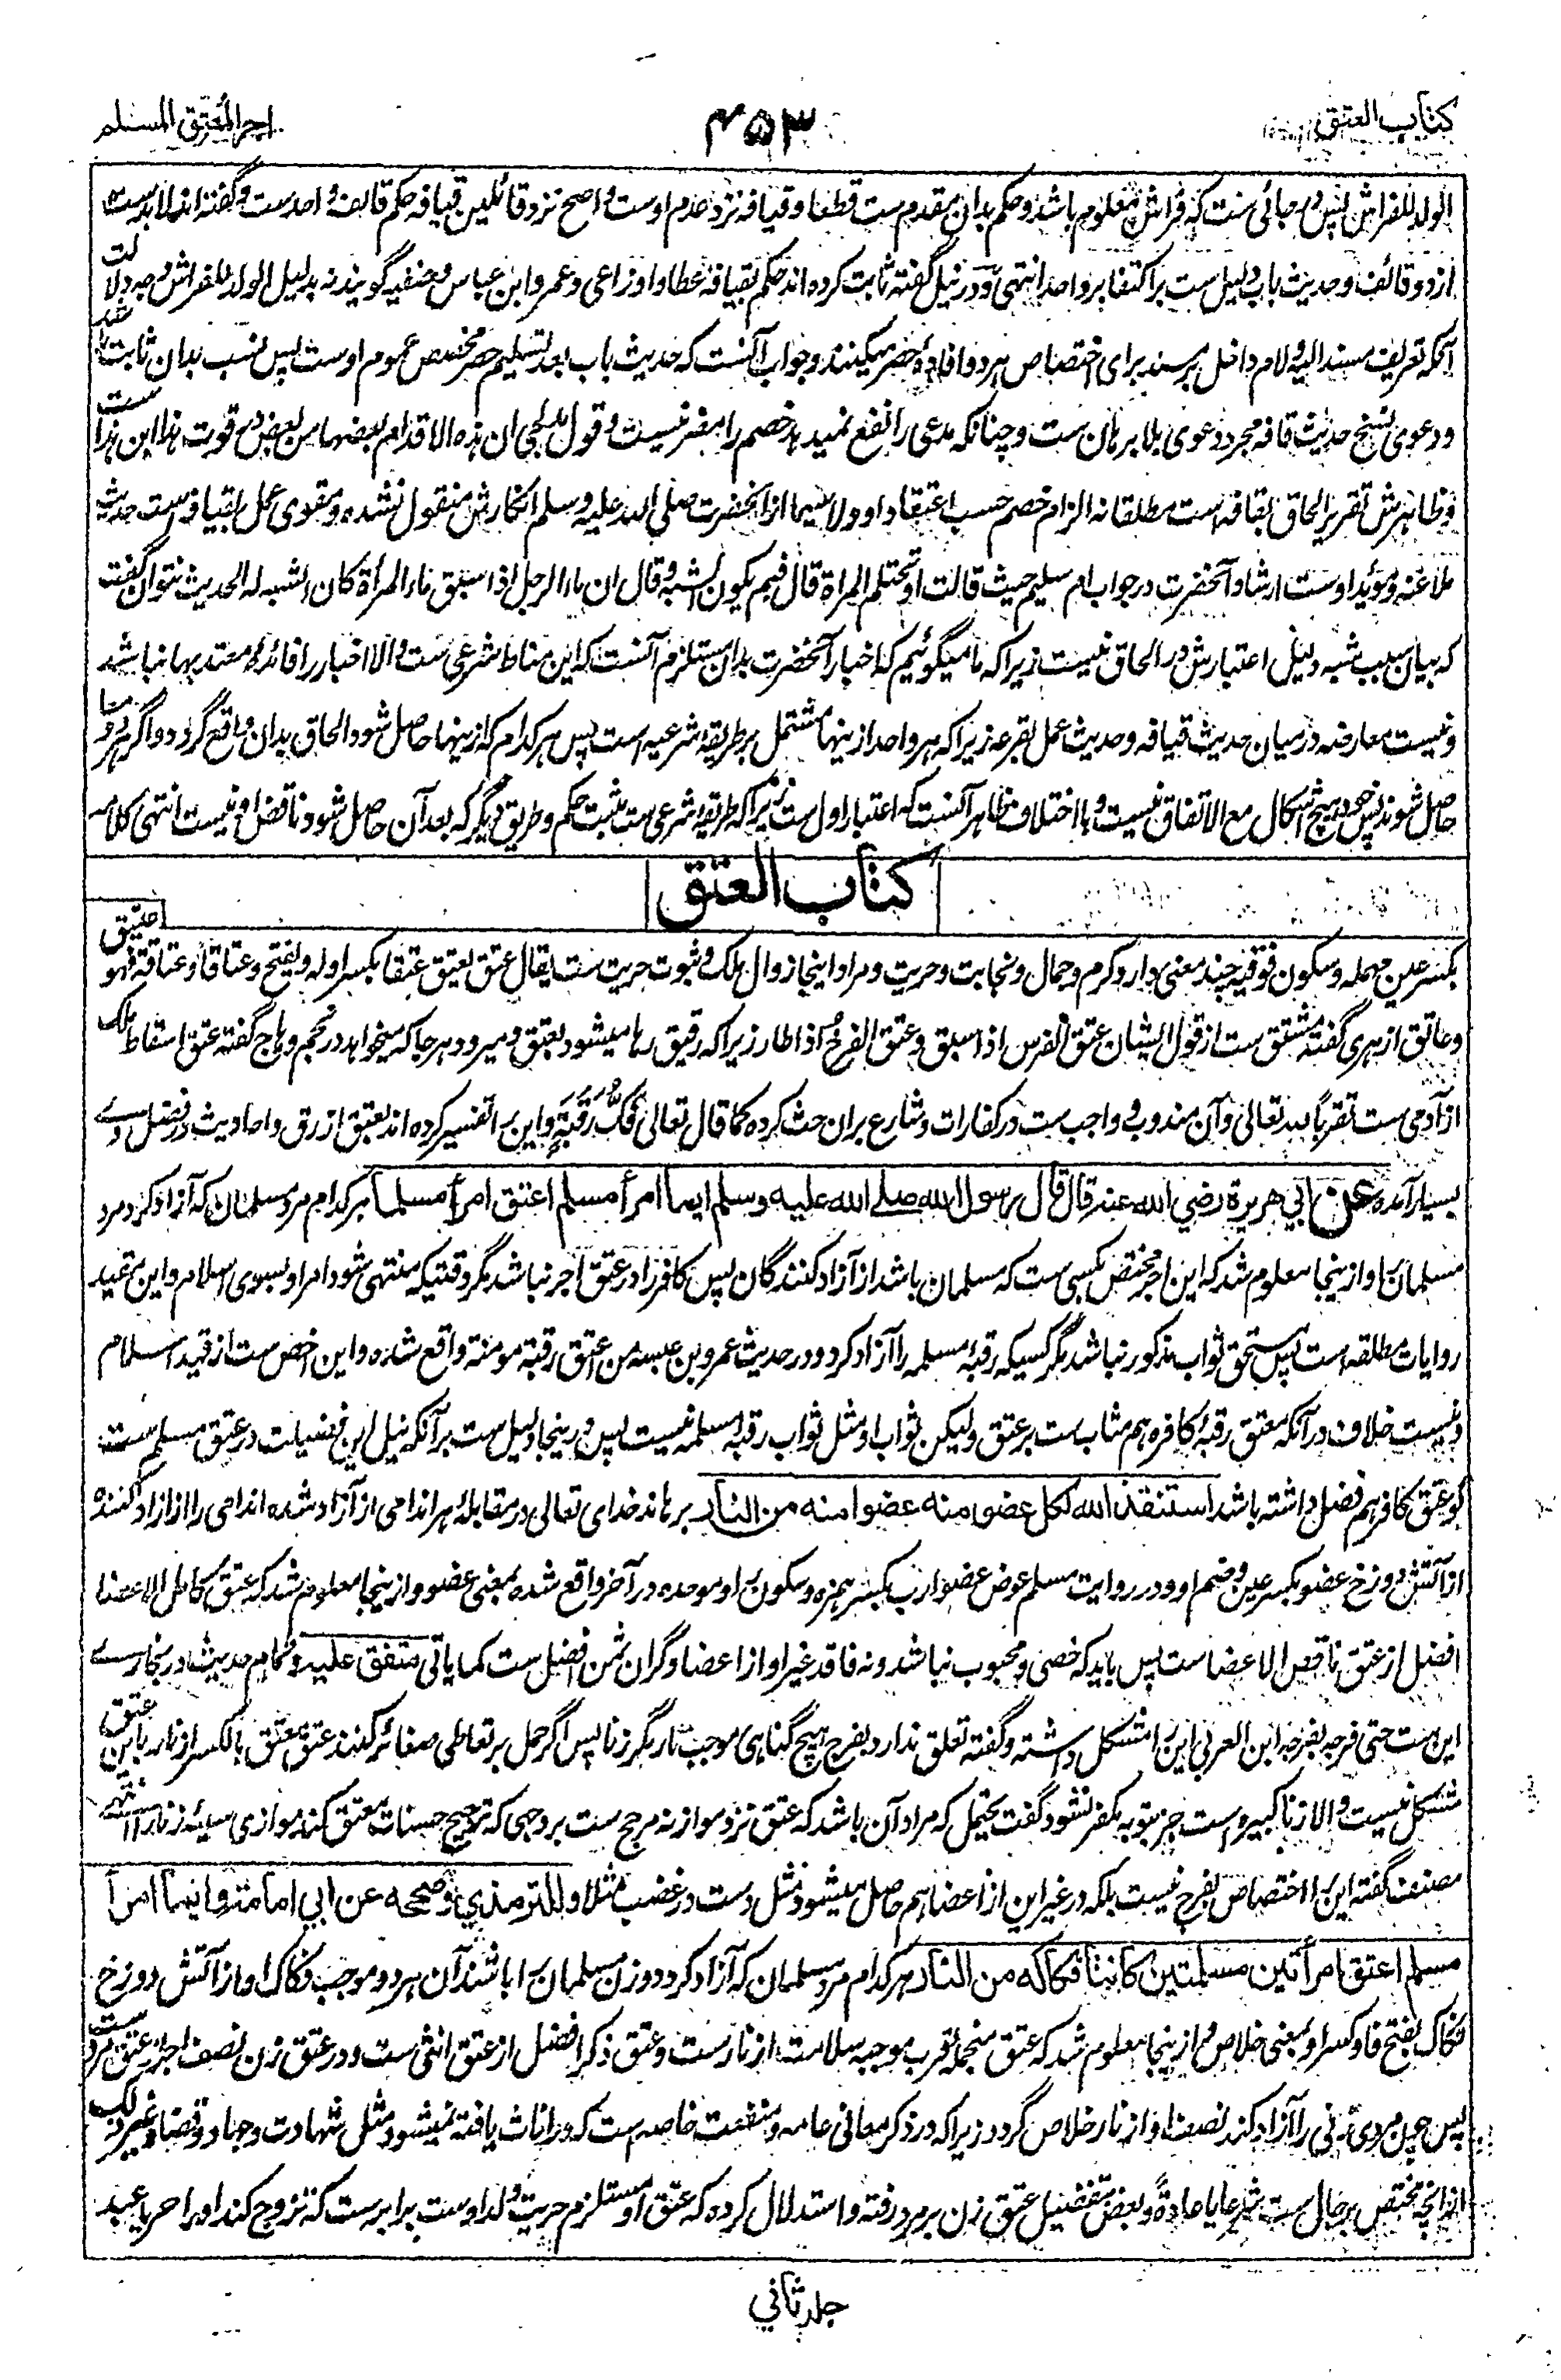 كتاب العتق
۴۵۳
اجر المعتق المسلم
الولد للفراش پس در جائی ست که فراش معلوم باشد و حکم بدان مقدم ست قطعا و قیافه نزد عدم اوست و اصح نزد قائلین قیافه حکم قائف واحد ست و گفته اند لابد ست
از دو قائف و حدیث باب دلیل ست بر اکتفا بر واحد انتهی و در نیل گفته ثابت کرده اند حکم بقیافه عطا و اوزاعی و عمر و ابن عباس و حنفیه گویند نه بدلیل الولد للفراش وجه دلالت
آنکه تعریف مسند الیه و لام داخل بر سند برای اختصاص هر دو افاده حصر میکنند و جواب آنست که حدیث باب بعد تسلیم حصر مخصص عموم اوست پس نسب بدان ثابت باشد
و دعوی نسخ حدیث قافه مجرد دعوی بلا برهان ست و چنانکه مدعی را نفع نمیدهد خصم را مضر نیست و قول مدلجی ان هذه الاقدام بعضها من بعض در قوت هذا ابن هذا ست
و ظاهرش تقریر الحاق بقافه است مطلقا نه الزام خصم حسب اعتقاد او و لاسیما از آنحضرت صلی الله علیه وسلم انکارش منقول نشده و مقوی عمل بقیافه است حدیث
ملاعنه و مؤید اوست ارشاد آنحضرت در جواب ام سلیم حیث قالت او تحتلم المرأة قال فبم یکون الشبه و قال ان ماء الرجل اذا سبق ماء المرأة کان الشبه له الحدیث نتوان گفت
که بیان سبب شبه دلیل اعتبارش در الحاق نیست زیرا که ما میگوئیم که اخبار آنحضرت بدان مستلزم آنست که این مناط شرعی ست والا اخبار را فائده معتد بها نباشد
و نیست معارضه درمیان حدیث قیافه و حدیث عمل بقرعه زیرا که هر واحد ازینها مشتمل بر طریقه شرعیه است پس هر کدام که ازینها حاصل شود الحاق بدان واقع گردد و اگر هر دو معا
حاصل شوند پس خود هیچ اشکال مع الاتفاق نیست و با اختلاف ظاهر آنست که اعتبار اول ست زیرا که طریقه شرعی ست مثبت حکم و طریق دیگر که بعد آن حاصل شود ناقض او نیست انتهی کلامه
كتاب العتق
بکسر عین مهمله و سکون فوقیه چند معنی دارد کرم و جمال و نجابت و حریت و مراد اینجا زوال ملک و ثبوت حریت ست یقال عتق یعتق عتقا بکسر اوله و یفتح و عتاقا و عتاقة فهو عتیق
و عاتق ازهری گفته مشتق ست از قول ایشان عتق الفرس اذا سبق و عتق الفرخ اذا طار زیرا که رقیق رها میشود بعتق و میرود هر جا که میخواهد در نجم وهاج گفته عتق اسقاط ملک
از آدمی ست تقربا لله تعالی و آن مندوب و واجب ست در کفارات و شارع بران حث کرده کما قال تعالی فَكُّ رَقَبَةٍ و این را تفسیر کرده اند بعتق از رق و احادیث در فضل وے
بسیار آمده عن ابي هريرة رضي الله عنه قال قال رسول الله صلے الله عليه وسلم ايما امرأ مسلم اعتق امرأ مسلما هر کدام مرد مسلمان که آزاد کرد مرد
مسلمان را و ازینجا معلوم شد که این اجر مختص بکسی ست که مسلمان باشد از آزاد کنندگان پس کافر را در عتق اجر نباشد مگر وقتیکه منتهی شود امر او بسوی اسلام و این مقید
روایات مطلقه است پس مستحق ثواب مذکور نباشد مگر کسیکه رقبۀ مسلمه را آزاد کرد و در حدیث عمرو بن عبسه من اعتق رقبة مومنة واقع شده و این اخص ست از قید اسلام
و نیست خلاف در آنکه معتق رقبۀ کافره هم مثاب ست بر عتق ولیکن ثواب او مثل ثواب رقبه مسلمه نیست پس درینجا دلیل ست بر آنکه نیل این فضیلت در عتق مسلم ست
گو عتق کافر هم فضل داشته باشد استنقذ الله بكل عضو منه عضوا منه من النار برهاند خدای تعالی در مقابلۀ هر اندامی از آزاد شده اندامی را از آزاد کننده
از آتش دوزخ عضو بکسر عین و ضم او و در روایت مسلم عوض عضو ارب بکسر همزه و سکون را و موحده در آخر واقع شده بمعنی عضو و ازینجا معلوم شد که عتق کامل الاعضا
افضل از عتق ناقص الاعضا ست پس باید که خصی و مجبوب نباشد و نه فاقد غیر او از اعضا و گران ثمن افضل ست کما یاتی متفق عليه و تمام حدیث در بخارے
این ست حتی فرجه بفرجه ابن العربی این را مشکل داشته و گفته تعلق ندارد بفرج هیچ گناهی موجب نار مگر زنا پس اگر حمل بر تعاطی صغائر کنند عتق معتق بالکسر از نار باین عتق
مشکل نیست والا زنا کبیره است جز بتوبه مکفر نشود گفت یحتمل که مراد آن باشد که عتق نزد موازنه مرجح ست بر وجهی که ترجیح حسنات معتق کند موازی سیئه زنا را انتهی
مصنف گفته این را اختصاص بفرج نیست بلکه در غیر این از اعضا هم حاصل میشود مثل دست در غضب مثلا وللترمذي وصححه عن ابي امامة وايما امرأ
مسلم اعتق امرأتين مسلمتين كانتا فكاكه من النار هر کدام مرد مسلمان که آزاد کرد دو زن مسلمان را باشند آن هر دو موجب فکاک او از آتش دوزخ
فکاک بفتح فا و کسر او بمعنی خلاص و ازینجا معلوم شد که عتق منجمله قرب موجبه سلامت از نار ست و عتق ذکر افضل از عتق انثی ست و در عتق زن نصف اجر عتق مرد ست
پس چون مردی زنی را آزاد کند نصف او از نار خلاص گردد زیرا که در ذکر معانی عامه و منفعت خاصه است که در اناث یافته نمیشود مثل شهادت و جهاد و قضا و غیر ذلک
از آنچه مختص برجال ست شرعا یا عادةً و بعض بتفضیل عتق زن بر مرد رفته و استدلال کرده که عتق او مستلزم حریت ولد اوست برابر ست که تزوج کند او را حر یا عبد
جلد ثاني